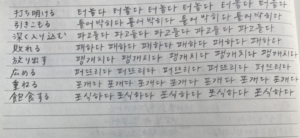 打ち明ける 터놓다 터놓다 터놓다 터놓다 터놓다 터놓다
引きこもる 틀어박히다 틀어박히다 틀어박히다 틀어박히다
深く入り込む 파고들다 파고들다 파고들다 파고들다 파고들다
敗れる 패하다 패하다 패하다 패하다 패하다 패하다
放り出す 팽개치다 팽개치다 팽개치다 팽개치다 팽개치다
広める 퍼뜨리다 퍼뜨리다 퍼뜨리다 퍼뜨리다 퍼뜨리다
重ねる 포개다 포개다 포개다 포개다 포개다 포개다
飽食する 포식하다 포식하다 포식하다 포식하다 포식하다